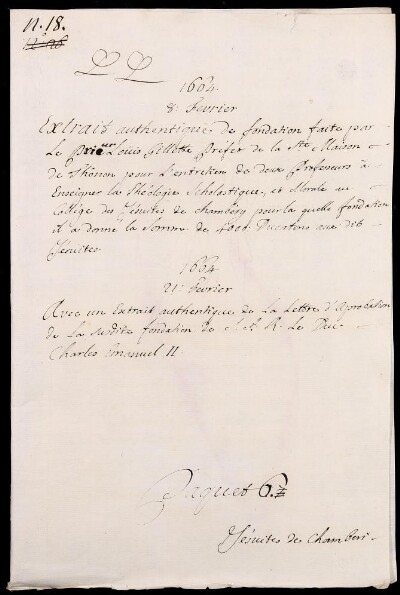 n. 18.
1664
8. Fevrier
Extrait authentique de fondation faite par
Le Prieur Louis Pillotte Préfet de la Ste Maison
de Thonon pour l'entretien de deux Professeurs à
Enseigner la Théologie Scholastique, et Morale au
Collége des Jésuites de chambéry pour la quelle fondation
il à donné la Somme de 4000 Ducatons aux dits
Jésuites.
1664
21. Fevrier
Avec un Extrait authentique de La Lettre d'Aprobation
de La susdite fondation de S. A. R. Le Duc
Charles Emanuel II.
Paquet 6.
Jésuites de Chamberi